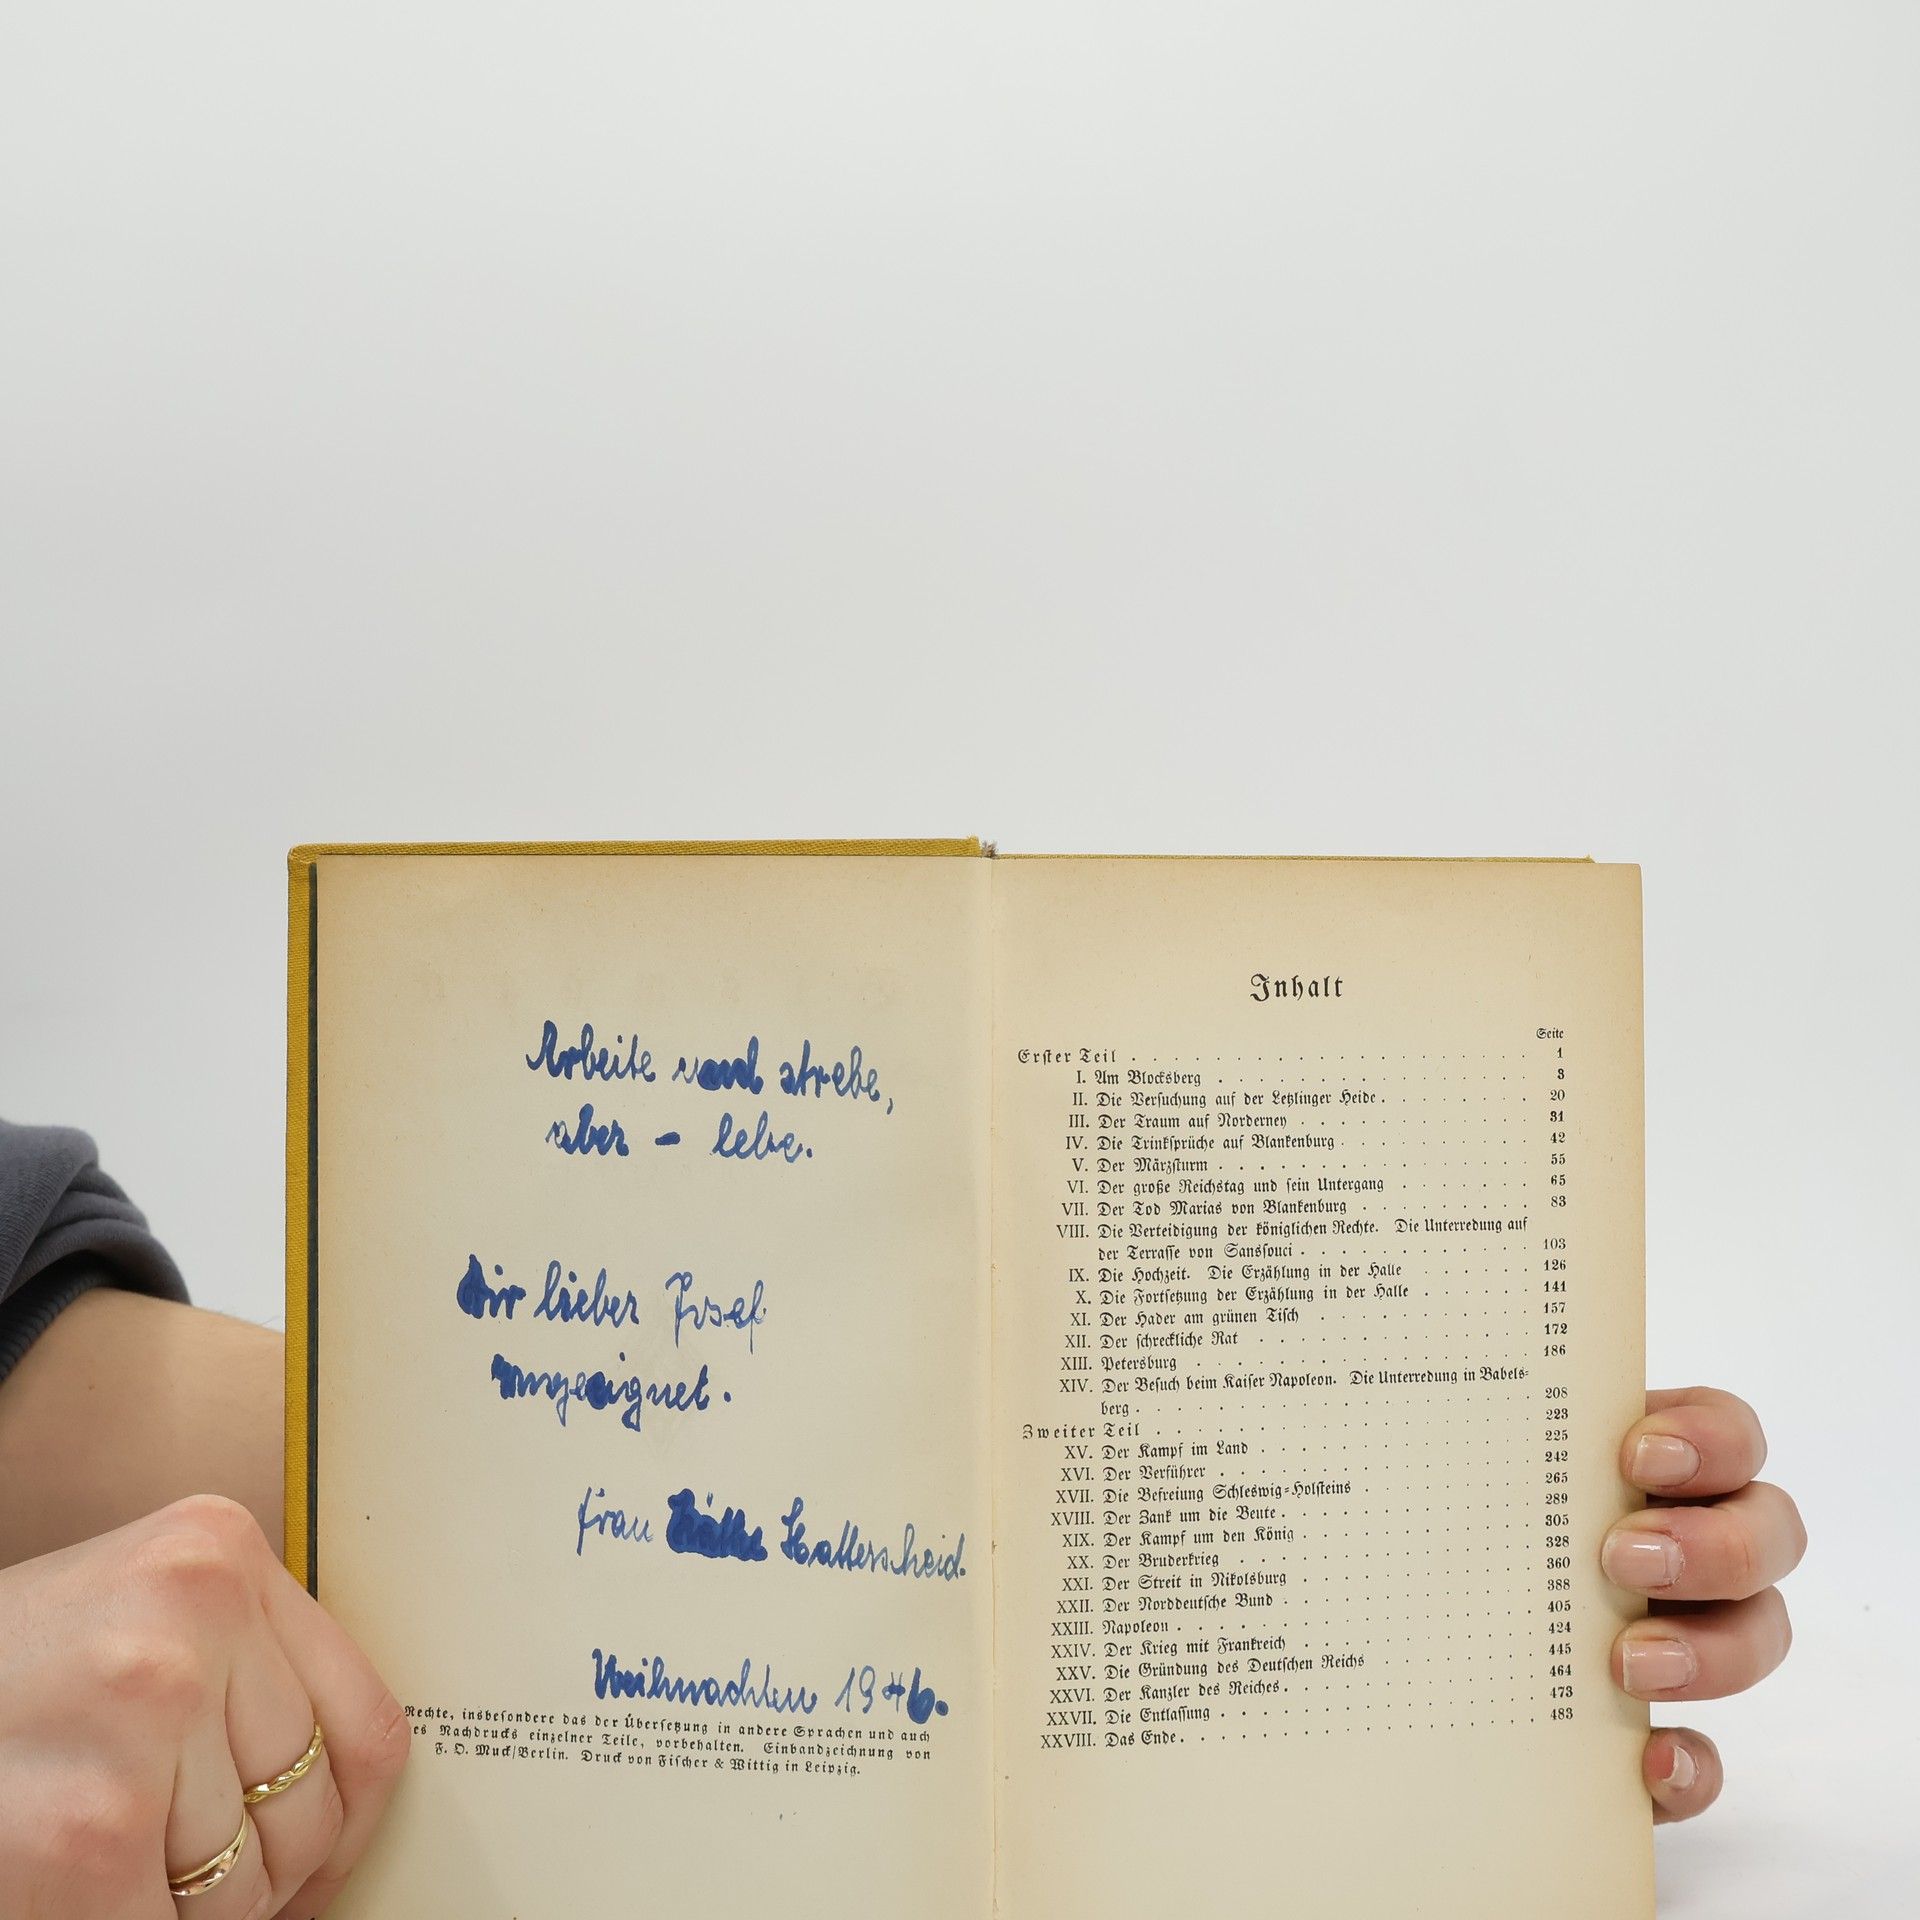 Arbeite und strebe,
aber – lebe.
Dir lieber Josef
zugeeignet.
Frau Käthe Hatterscheid.
Weihnachten 1946.
Rechte, insbesondere das der Übersetzung in andere Sprachen und auch
es Nachdrucks einzelner Teile, vorbehalten. Einbandzeichnung von
F. O. Muck/Berlin. Druck von Fischer & Wittig in Leipzig.
Inhalt
Seite
Erster Teil . . . 1
I. Am Blocksberg . . . 3
II. Die Versuchung auf der Letzlinger Heide . . . 20
III. Der Traum auf Norderney . . . 31
IV. Die Trinksprüche auf Blankenburg . . . 42
V. Der Märzsturm . . . 55
VI. Der große Reichstag und sein Untergang . . . 65
VII. Der Tod Marias von Blankenburg . . . 83
VIII. Die Verteidigung der königlichen Rechte. Die Unterredung auf
der Terrasse von Sanssouci . . . 103
IX. Die Hochzeit. Die Erzählung in der Halle . . . 126
X. Die Fortsetzung der Erzählung in der Halle . . . 141
XI. Der Hader am grünen Tisch . . . 157
XII. Der schreckliche Rat . . . 172
XIII. Petersburg . . . 186
XIV. Der Besuch beim Kaiser Napoleon. Die Unterredung in Babels-
berg . . . 208
Zweiter Teil . . . 223
XV. Der Kampf im Land . . . 225
XVI. Der Verführer . . . 242
XVII. Die Befreiung Schleswig-Holsteins . . . 265
XVIII. Der Zank um die Beute . . . 289
XIX. Der Kampf um den König . . . 305
XX. Der Bruderkrieg . . . 328
XXI. Der Streit in Nikolsburg . . . 360
XXII. Der Norddeutsche Bund . . . 388
XXIII. Napoleon . . . 405
XXIV. Der Krieg mit Frankreich . . . 424
XXV. Die Gründung des Deutschen Reichs . . . 445
XXVI. Der Kanzler des Reiches . . . 464
XXVII. Die Entlassung . . . 473
XXVIII. Das Ende . . . 483